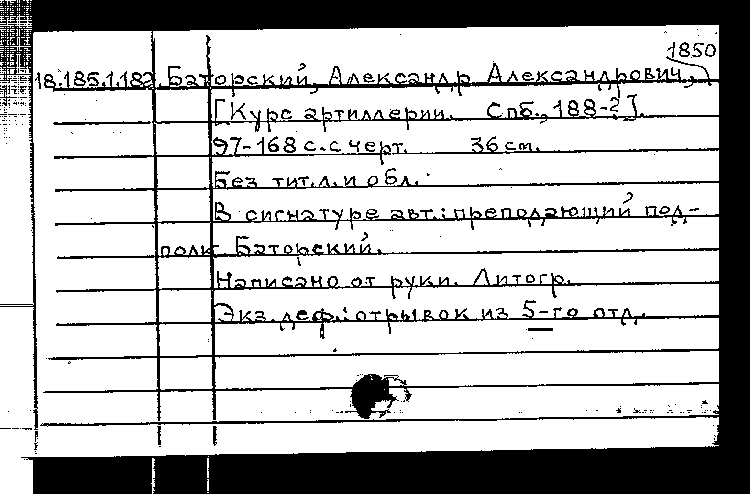 1850
18.185.1.182 Баторский, Александр Александрович,
[Курс артиллерии. Спб., 188-?].
97-168 с. с черт. 36 см.
Без тит. л. и обл.
В сигнатуре авт.: преподающий под-
полк. Баторский.
Написано от руки. Литогр.
Экз. деф.: отрывок из 5-го отд.